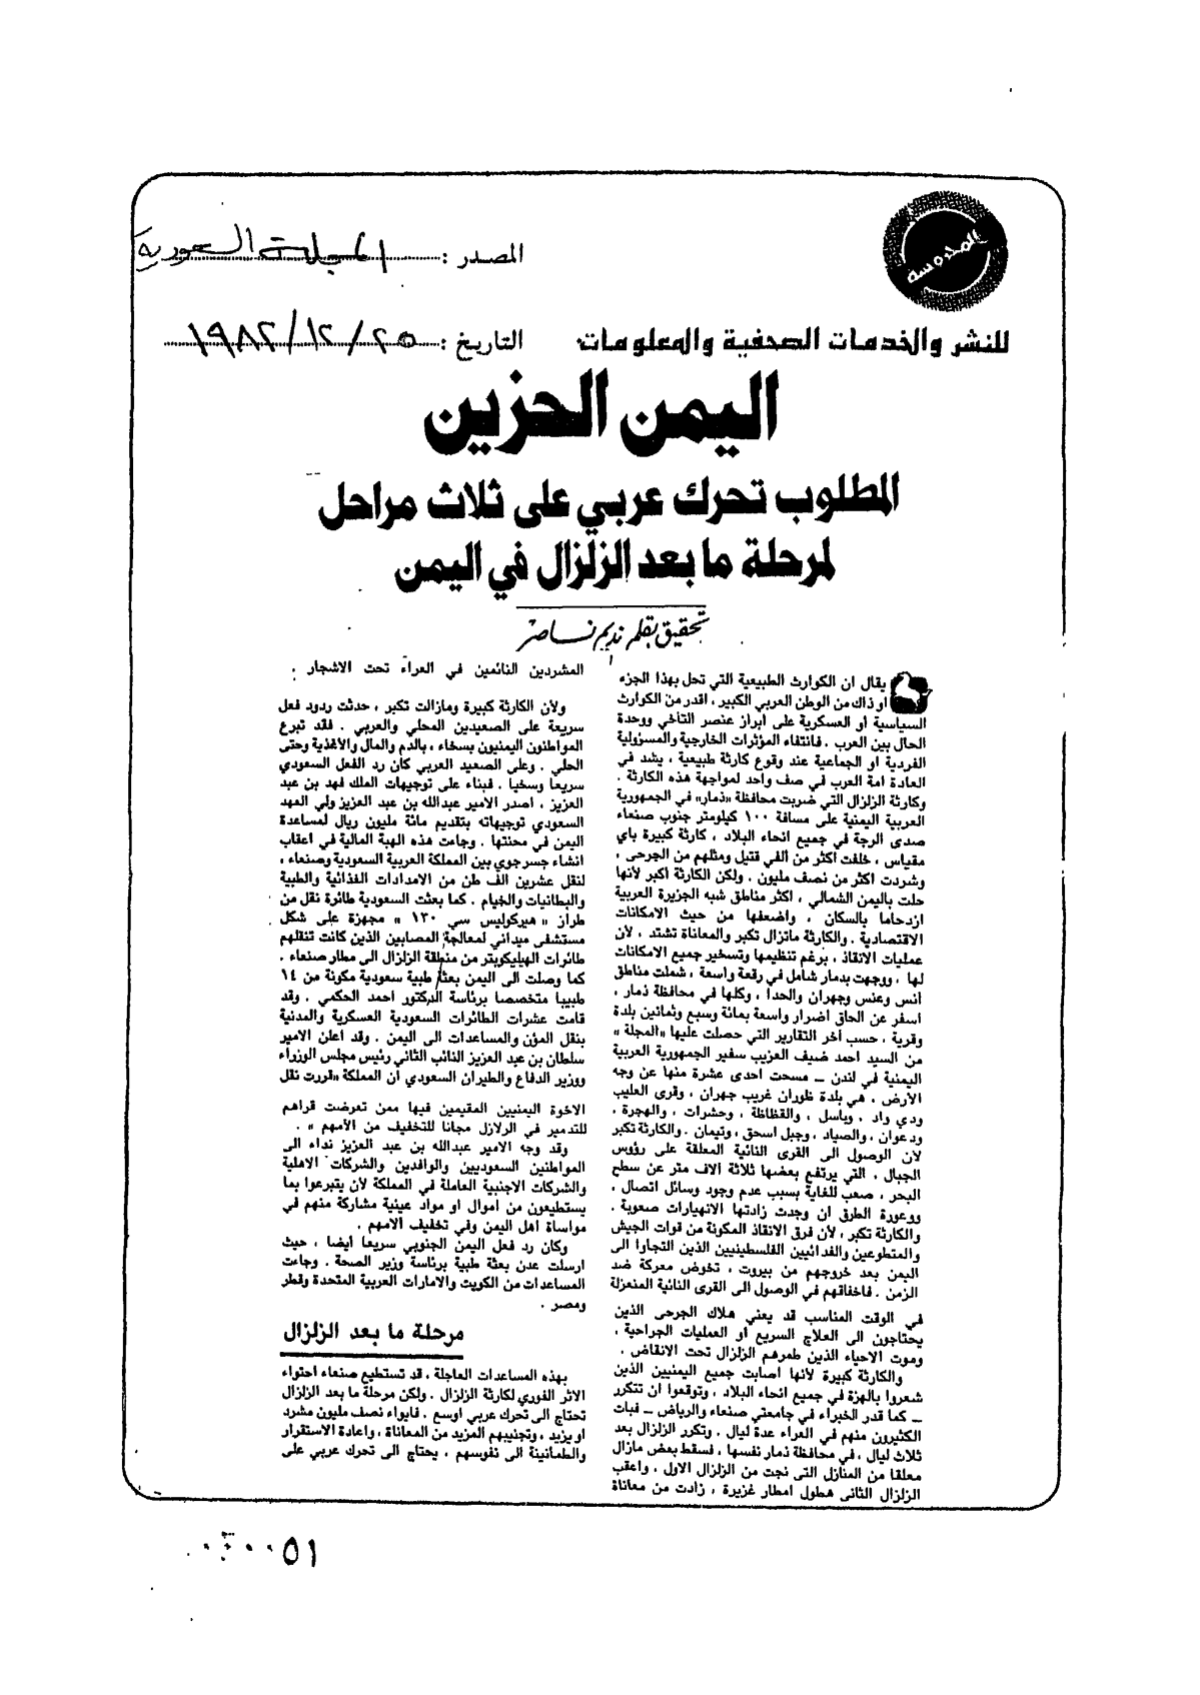 المحروسة
المصدر : المجلة السعودية
للنشر والخدمات الصحفية والمعلومات
التاريخ : ٢٥ / ١٢ / ١٩٨٢
اليمن الحزين
المطلوب تحرك عربي على ثلاث مراحل
لمرحلة ما بعد الزلزال في اليمن
تحقيق بقلم نديم ناصر
يقال ان الكوارث الطبيعية التي تحل بهذا الجزء
او ذاك من الوطن العربي الكبير ، اقدر من الكوارث
السياسية أو العسكرية على ابراز عنصر التآخي ووحدة
الحال بين العرب . فانتفاء المؤثرات الخارجية والمسؤولية
الفردية او الجماعية عند وقوع كارثة طبيعية ، يشد في
العادة امة العرب في صف واحد لمواجهة هذه الكارثة .
وكارثة الزلزال التي ضربت محافظة «ذمار» في الجمهورية
العربية اليمنية على مسافة ١٠٠ كيلومتر جنوب صنعاء
صدى الرجة في جميع انحاء البلاد ، كارثة كبيرة باي
مقياس ، خلفت اكثر من ألفي قتيل ومثلهم من الجرحى ،
وشردت اكثر من نصف مليون . ولكن الكارثة اكبر لأنها
حلت باليمن الشمالي ، اكثر مناطق شبه الجزيرة العربية
ازدحاما بالسكان ، واضعفها من حيث الامكانات
الاقتصادية . والكارثة ماتزال تكبر والمعاناة تشتد ، لأن
عمليات الانقاذ ، برغم تنظيمها وتسخير جميع الامكانات
لها ، ووجهت بدمار شامل في رقعة واسعة ، شملت مناطق
أنس وعنس وجهران والحدا ، وكلها في محافظة ذمار ،
اسفر عن الحاق اضرار واسعة بمائة وسبع وثمانين بلدة
وقرية ، حسب آخر التقارير التي حصلت عليها «المجلة»
من السيد احمد ضيف العزيب سفير الجمهورية العربية
اليمنية في لندن – مسحت احدى عشرة منها عن وجه
الأرض ، هي بلدة ظوران غريب جهران ، وقرى العليب
ودي واد ، وباسل ، والقظاظة ، وحشرات ، والهجرة ،
ودعوان ، والصياد ، وجبل اسحق ، وتيمان . والكارثة تكبر
لأن الوصول الى القرى النائية المعلقة على رؤوس
الجبال ، التي يرتفع بعضها ثلاثة آلاف متر عن سطح
البحر ، صعب للغاية بسبب عدم وجود وسائل اتصال ،
ووعورة الطرق ان وجدت زادتها الانهيارات صعوبة .
والكارثة تكبر ، لأن فرق الانقاذ المكونة من قوات الجيش
والمتطوعين والفدائيين الفلسطينيين الذين التجأوا الى
اليمن بعد خروجهم من بيروت ، تخوض معركة ضد
الزمن . فاخفاقهم في الوصول الى القرى النائية المنعزلة
في الوقت المناسب قد يعني هلاك الجرحى الذين
يحتاجون الى العلاج السريع او العمليات الجراحية ،
وموت الاحياء الذين طمرهم الزلزال تحت الانقاض .
والكارثة كبيرة لأنها اصابت جميع اليمنيين الذين
شعروا بالهزة في جميع انحاء البلاد ، وتوقعوا ان تتكرر
– كما قدر الخبراء في جامعتي صنعاء والرياض – فبات
الكثيرون منهم في العراء عدة ليال . وتكرر الزلزال بعد
ثلاث ليال ، في محافظة ذمار نفسها ، فسقط بعض مازال
معلقا من المنازل التي نجت من الزلزال الاول ، واعقب
الزلزال الثاني هطول امطار غزيرة ، زادت من معاناة
المشردين النائمين في العراء تحت الاشجار .
ولأن الكارثة كبيرة ومازالت تكبر ، حدثت ردود فعل
سريعة على الصعيدين المحلي والعربي . فقد تبرع
المواطنون اليمنيون بسخاء ، بالدم والمال والأغذية وحتى
الحلي . وعلى الصعيد العربي كان رد الفعل السعودي
سريعا وسخيا . فبناء على توجيهات الملك فهد بن عبد
العزيز ، اصدر الامير عبدالله بن عبد العزيز ولي العهد
السعودي توجيهاته بتقديم مائة مليون ريال لمساعدة
اليمن في محنتها . وجاءت هذه الهبة المالية في اعقاب
انشاء جسر جوي بين المملكة العربية السعودية وصنعاء ،
لنقل عشرين الف طن من الامدادات الغذائية والطبية
والبطانيات والخيام . كما بعثت السعودية طائرة نقل من
طراز « هيركوليس سي ١٣٠ » مجهزة على شكل
مستشفى ميداني لمعالجة المصابين الذين كانت تنقلهم
طائرات الهيليكوبتر من منطقة الزلزال الى مطار صنعاء .
كما وصلت الى اليمن بعثة طبية سعودية مكونة من ١٤
طبيبا متخصصا برئاسة الدكتور احمد الحكمي . وقد
قامت عشرات الطائرات السعودية العسكرية والمدنية
بنقل المؤن والمساعدات الى اليمن . وقد اعلن الامير
سلطان بن عبد العزيز النائب الثاني رئيس مجلس الوزراء
ووزير الدفاع والطيران السعودي ان المملكة «قررت نقل
الاخوة اليمنيين المقيمين فيها ممن تعرضت قراهم
للتدمير في الزلازل مجانا للتخفيف من الأمهم » .
وقد وجه الامير عبدالله بن عبد العزيز نداء الى
المواطنين السعوديين والوافدين والشركات الاهلية
والشركات الاجنبية العاملة في المملكة لأن يتبرعوا بما
يستطيعون من اموال او مواد عينية مشاركة منهم في
مواساة اهل اليمن وفي تخفيف الامهم .
وكان رد فعل اليمن الجنوبي سريعا أيضا ، حيث
ارسلت عدن بعثة طبية برئاسة وزير الصحة . وجاءت
المساعدات من الكويت والامارات العربية المتحدة وقطر
ومصر .
مرحلة ما بعد الزلزال
بهذه المساعدات العاجلة ، قد تستطيع صنعاء احتواء
الاثر الفوري لكارثة الزلزال . ولكن مرحلة ما بعد الزلزال
تحتاج الى تحرك عربي اوسع . فايواء نصف مليون مشرد
او يزيد ، وتجنيبهم المزيد من المعاناة ، واعادة الاستقرار
والطمانينة الى نفوسهم ، يحتاج الى تحرك عربي على